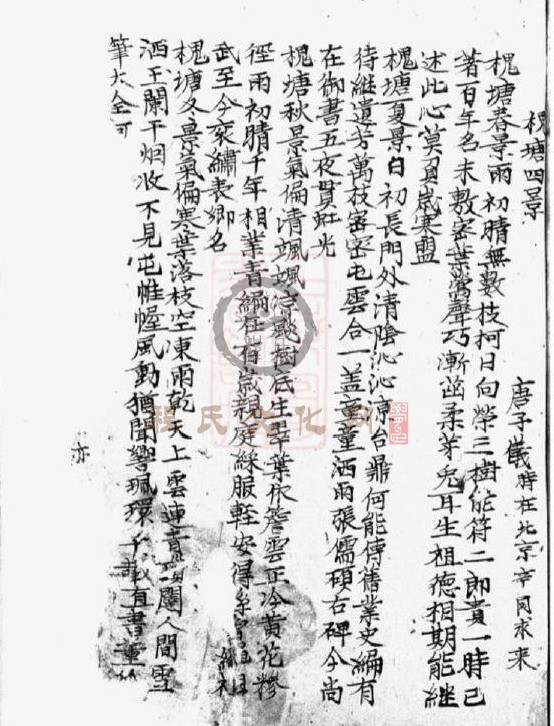 槐塘四景
唐子儀時在北京辛同求来
槐塘春景雨初晴無數枝柯日向榮三樹能符二郎貴一時已
著百年名未敷密葉鶯聲巧漸茁柔芽兎耳生祖德相期能継
述此心莫負歳寒盟
槐塘夏景日初長門外清陰沁沁凉台鼎何能傳舊業史編有
待継遺芳萬枝密密屯雲合一盖亭童洒雨張儒碩右碑今尚
在御書五夜貫虹光
槐塘秋景氣偏清颯颯凉飈樹底生翠葉依簷雲正冷黄花糝
徑雨初晴千年相業青編在有歳親庭綵服軽安得
武至今来繡表郷名
槐塘冬景氣偏寒葉落枝空凍雨乾天上雲連青瑣闥人間雪
洒玉闌干烟收不見屯帷幄風動猶聞響珮環千載直書
筆大全可
亦
程氏文化